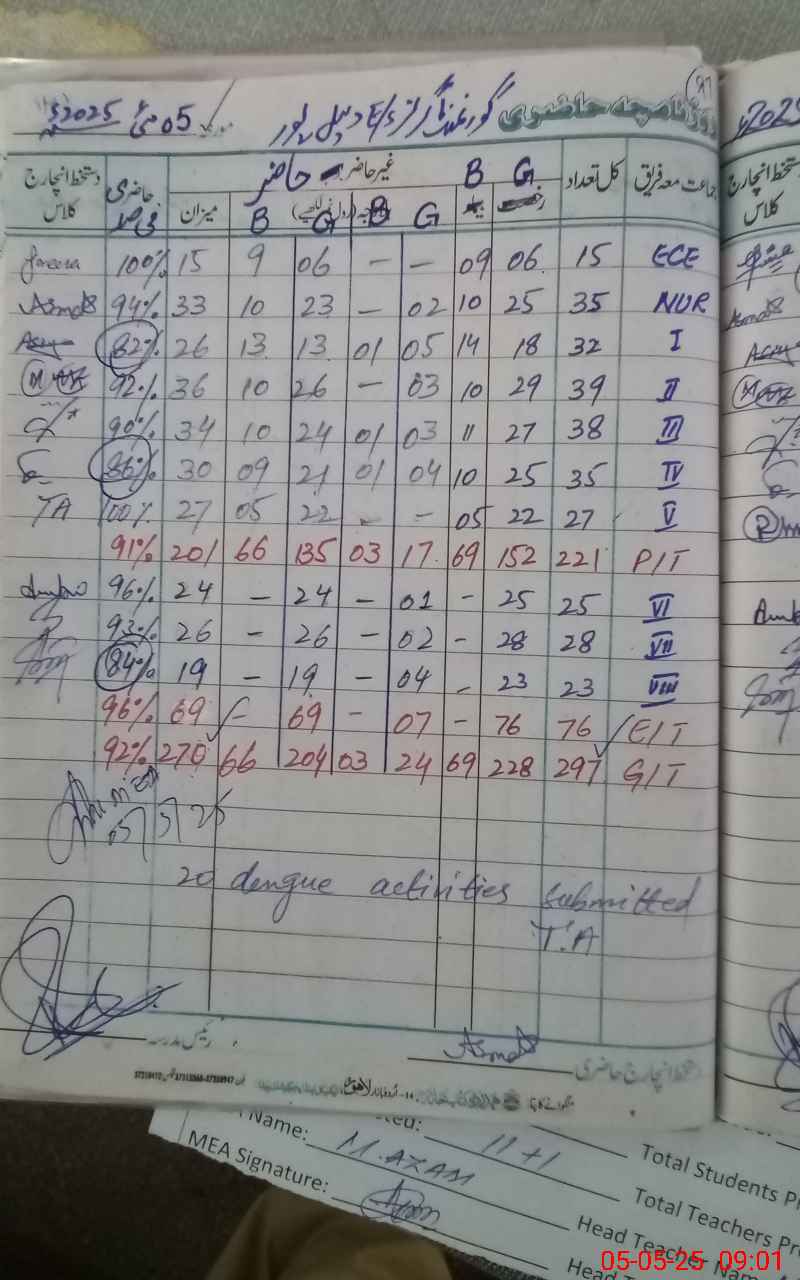 روزنامچہ حاضری
گورنمنٹ گرلز E/S
05 مئی 2025
جماعت معہ فریق کل تعداد G B غیر حاضر حاضر G B G B میزان حاضری فی صد دستخط انچارج کلاس
ECE 15 06 09 — — 06 9 15 100%
NUR 35 25 10 02 — 23 10 33 94% Asma
I 32 18 14 05 01 13 13 26 82%
II 39 29 10 03 — 26 10 36 92%
III 38 27 11 03 01 24 10 34 90%
IV 35 25 10 04 01 21 09 30 86%
V 27 22 05 - - 22 05 27 100% TA
P/T 221 152 69 17 03 135 66 201 91%
VI 25 25 - 01 - 24 - 24 96%
VII 28 28 - 02 - 26 - 26 93%
VIII 23 23 - 04 - 19 - 19 84%
E/T 76 76 - 07 - 69 - 69 96%
G/T 297 228 69 24 03 204 66 270 92%
20 dengue activities submitted
T.A
رئیس مدرسہ
دستخط انچارج حاضری Asma
Name: M. AZAM 11+1 Total Students
MEA Signature: Total Teachers
Head Teacher
Head
05-05-25 09:01